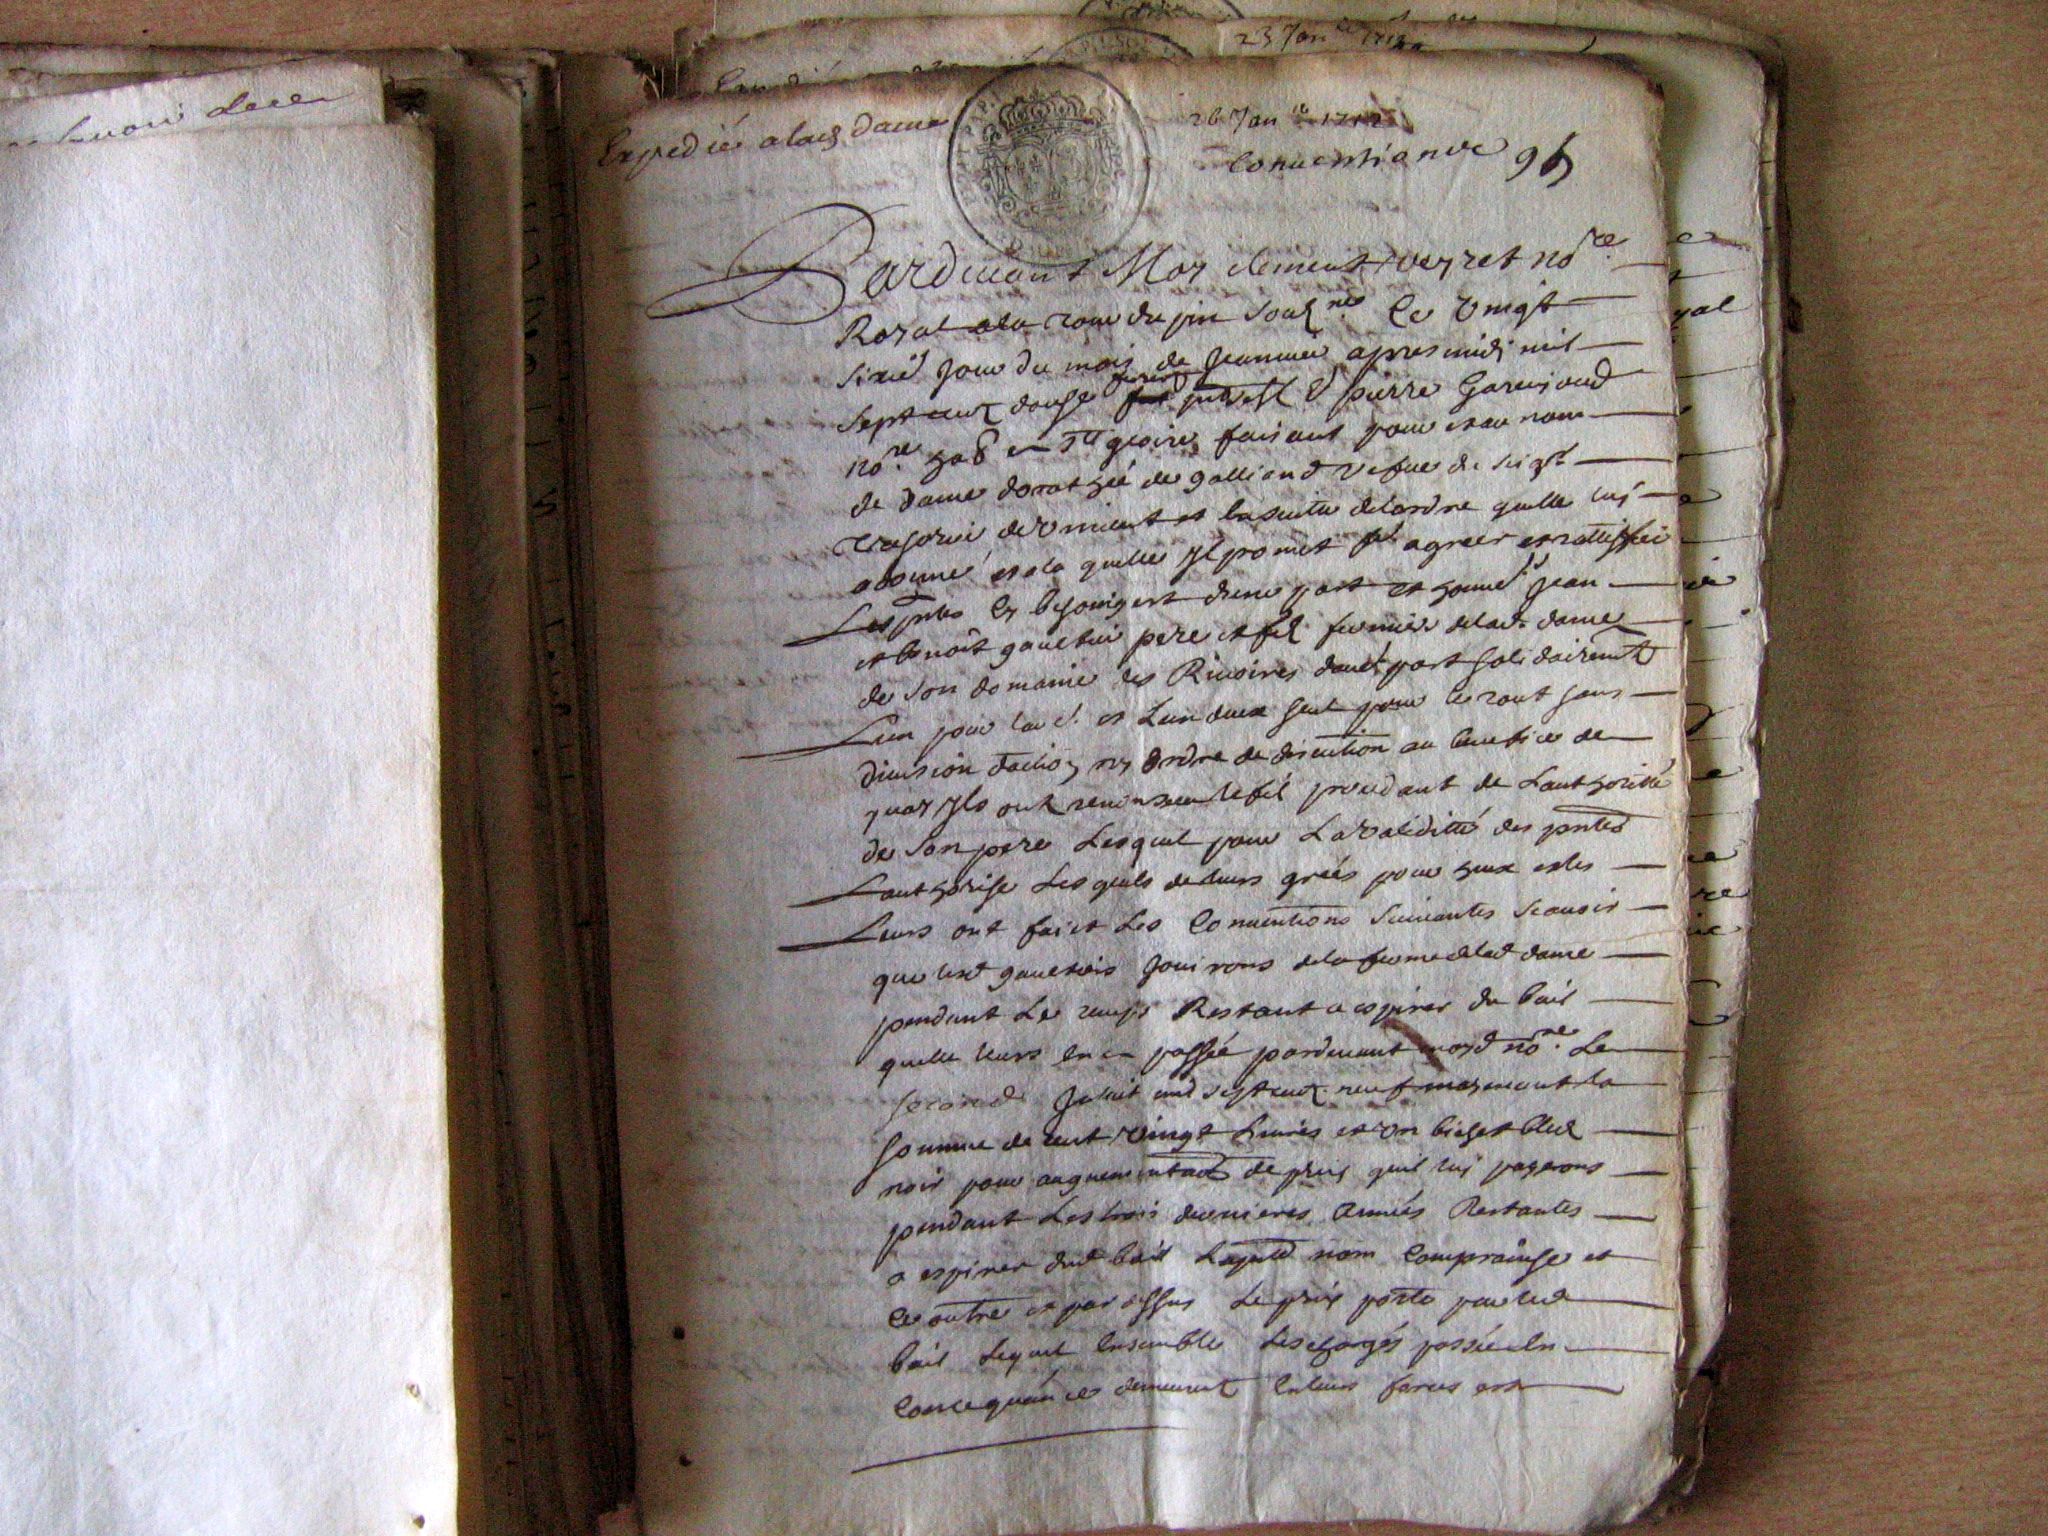 23 Jan
Expedié a lad dame
26 Jan 1712
Conventions
95
Pardevant Moy clement veyret nore
Royal a la tour du pin soubsné Ce vingt
sixié jour du mois de Jeanvier apres midi mil
sept cent douze furent pnt Sr pierre
nore en St geoire faisant pour et au nom
de Dame dorothée de galliand vefve de
de et la suitte de lordre quelle luy
a donné et a la quelle Il promet fe agreer et rattiffier
Les pntes Cy besoing est dune part et honnes Jean
et benoit gaultier pere et fils fermiers de lad dame
de son domaine des Rivoires dautre part solidairemt
Lun pour laud et Lun deux seul pour le tout sans
division daction ny ordre de discution au benefice de
quoy Ils ont renoncer le fil procedant de Lauthorité
de son pere Lequel pour La validitté des pntes
Lauthorise Lesquels de leurs grées pour heux et les
Leurs ont faict Les Conventions suivantes scavoir
que lesd gaultiers Jouirons de la ferme de lad dame
pendant Le temps Restant a expirer du bail
quelle leurs en a passée pardevant moyd nore Le
second mil sept cent neuf moyenant la
somme de cent vingt Livres et un bichet bled
noir pour augmentaon de prix quil luy payerons
pendant Les trois dernieres années Restantes
a expirer dud bail non comprainse et
Ce outre et par dessus Le prix porté par led
bail Lequel Ensemble Les charges passée En
Consequánce demeurent En leurs forces et